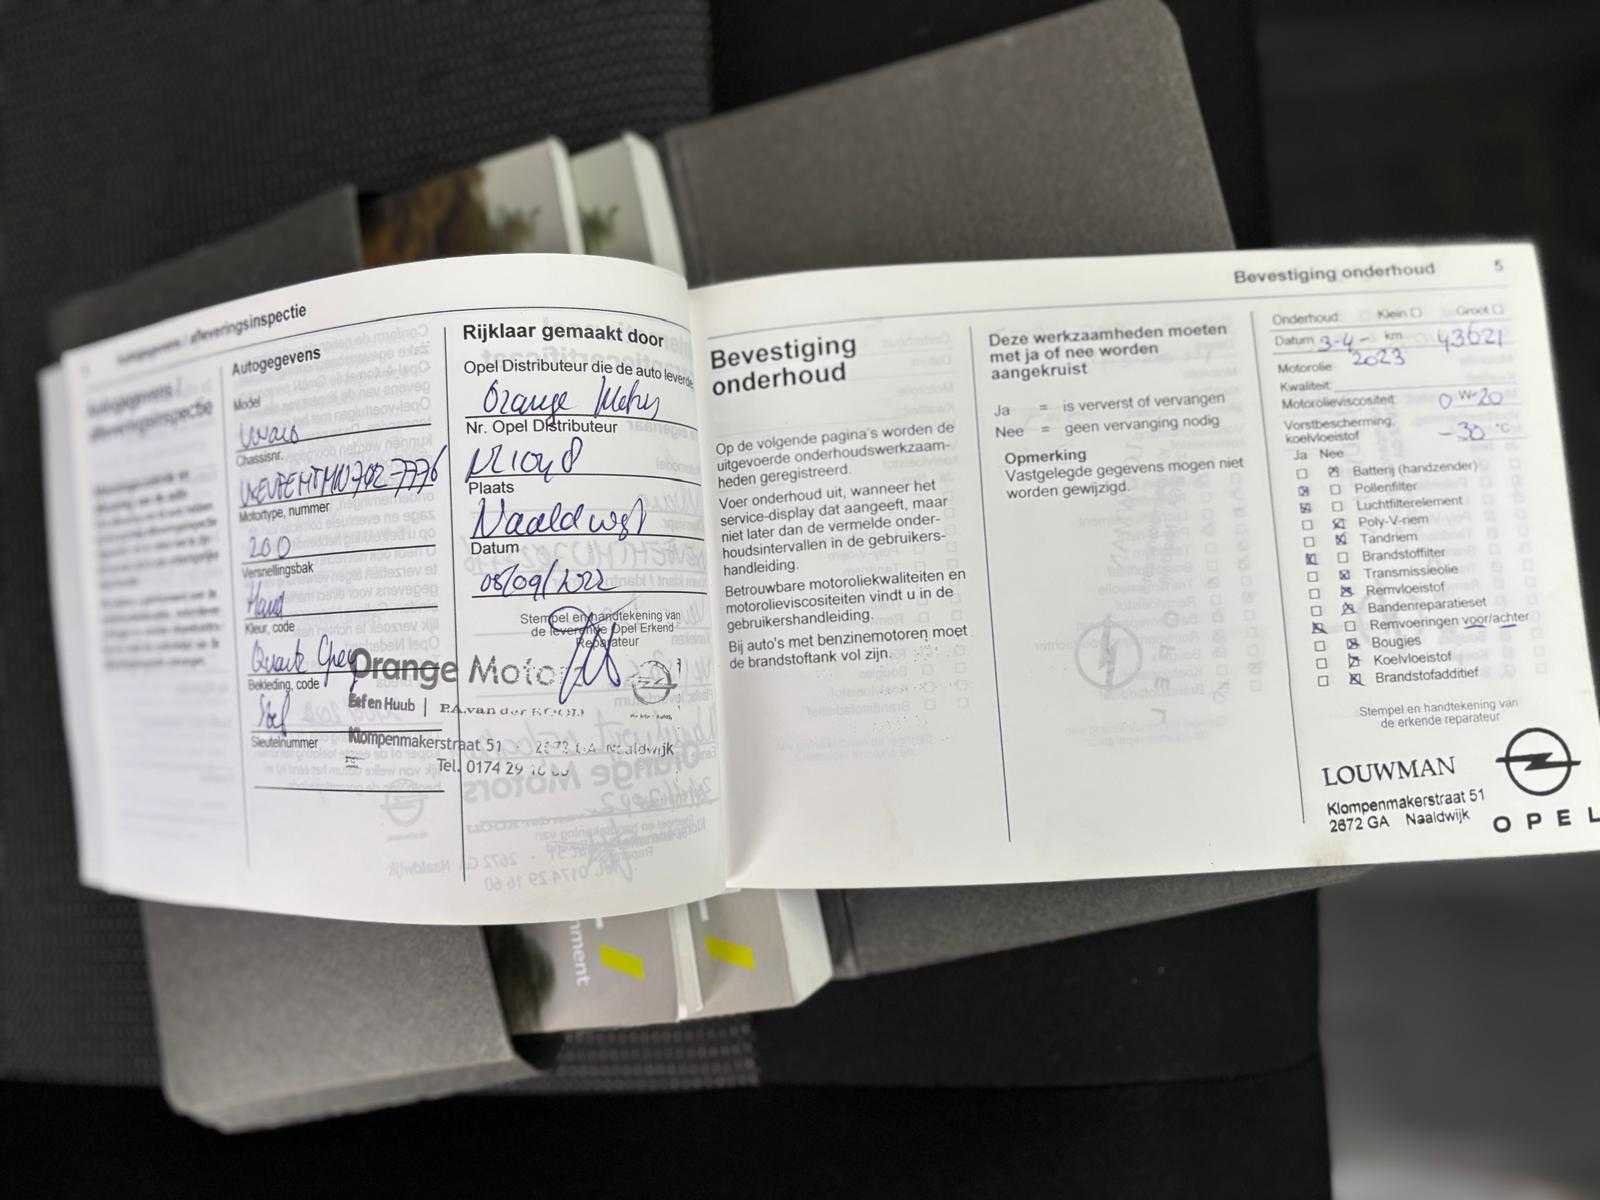 afleveringsinspectie
Autogegevens
Model
Vivaro
Chassisnr.
Motortype, nummer
200
Versnellingsbak
Hand
Kleur, code
Quartz Grey
Bekleding, code
Stof
Sleutelnummer
Rijklaar gemaakt door
Opel Distributeur die de auto leverde
Orange Motors
Nr. Opel Distributeur
Plaats
Naaldwijk
Datum
08/09/2022
Stempel en handtekening van
de leverende Opel Erkend
Reparateur
Orange Motors
Eef en Huub | P.A. van der
Klompenmakerstraat 51 · 2672 GA Naaldwijk
Tel. 0174 29 16 60
Bevestiging onderhoud 5
Bevestiging
onderhoud
Op de volgende pagina's worden de
uitgevoerde onderhoudswerkzaam-
heden geregistreerd.
Voer onderhoud uit, wanneer het
service-display dat aangeeft, maar
niet later dan de vermelde onder-
houdsintervallen in de gebruikers-
handleiding.
Betrouwbare motoroliekwaliteiten en
motorolieviscositeiten vindt u in de
gebruikershandleiding.
Bij auto's met benzinemotoren moet
de brandstoftank vol zijn.
Deze werkzaamheden moeten
met ja of nee worden
aangekruist
Ja = is ververst of vervangen
Nee = geen vervanging nodig
Opmerking
Vastgelegde gegevens mogen niet
worden gewijzigd.
Onderhoud: Klein Groot
Datum 3-4-2023 km 43621
Motorolie:
Kwaliteit:
Motorolieviscositeit: 0 W-20
Vorstbescherming,
koelvloeistof -30 °C
Ja Nee
Batterij (handzender)
Pollenfilter
Luchtfilterelement
Poly-V-riem
Tandriem
Brandstoffilter
Transmissieolie
Remvloeistof
Bandenreparatieset
Remvoeringen voor/achter
Bougies
Koelvloeistof
Brandstofadditief
Stempel en handtekening van
de erkende reparateur
LOUWMAN
Klompenmakerstraat 51
2672 GA Naaldwijk
OPEL
nment